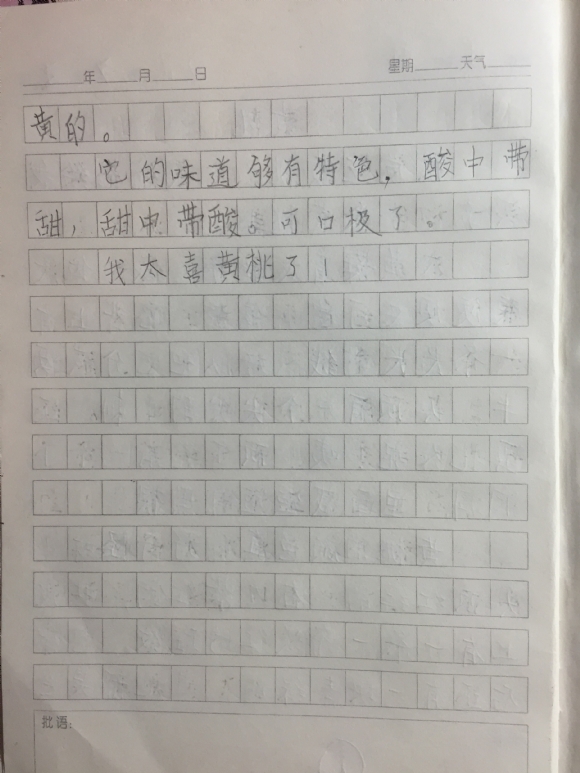 年 月 日 星期 天气
黄的。
它的味道够有特色，酸中带
甜，甜中带酸。可口极了。
我太喜黄桃了！
批语：